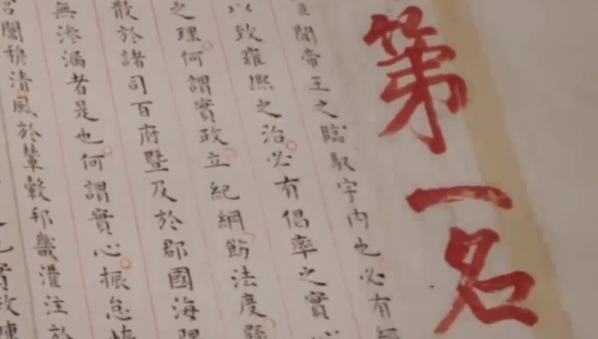 第一名
聞帝王之臨馭宇內也必有
以致雍熙之治必有倡率之實心
之理何謂實政立紀綱飭法度懸
散於諸司百府暨及於郡國海
無滲漏者是也何謂實心振怠
闈穆清風於輦轂邦畿灌注於
實政